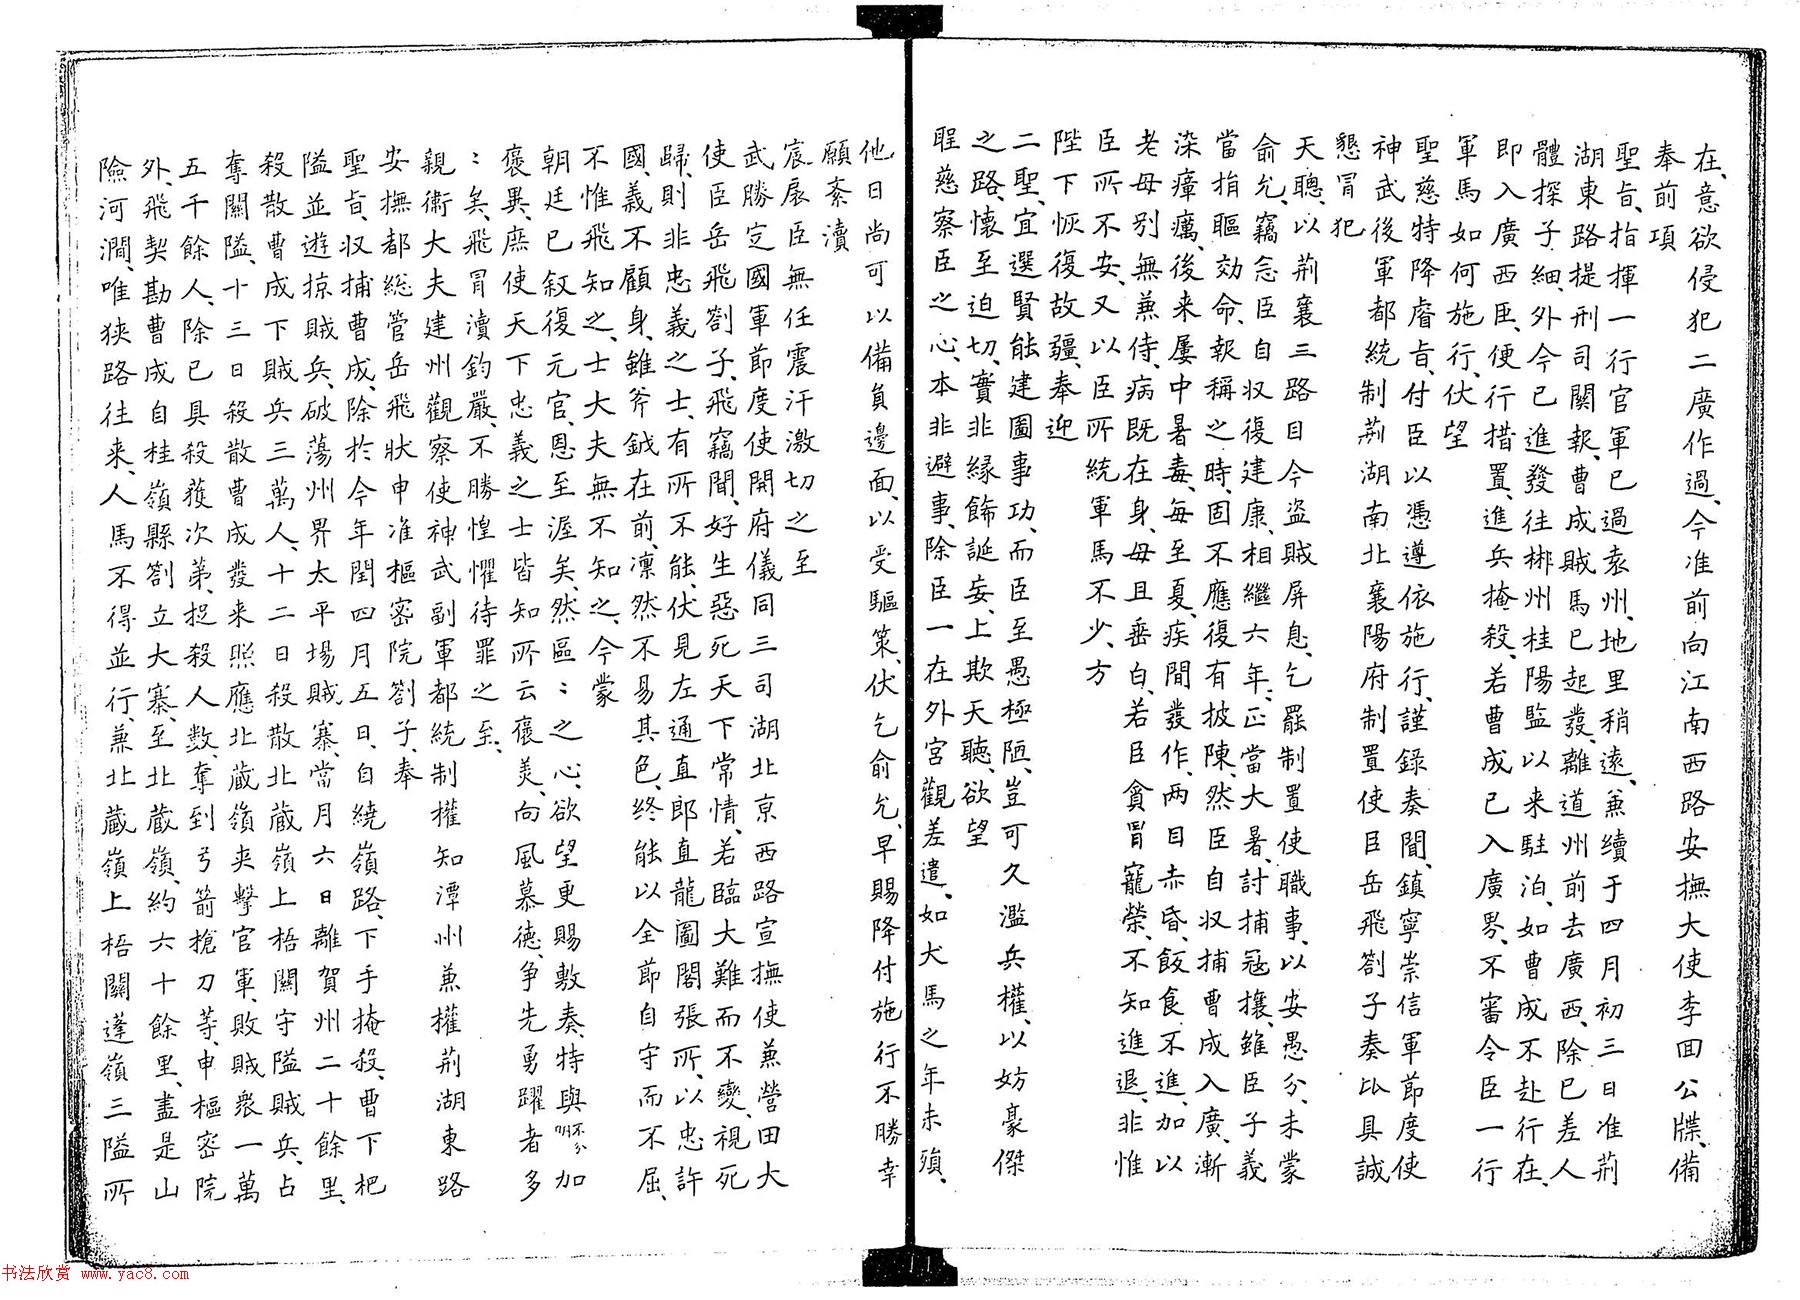 在、意欲侵犯二廣作過、今准前向江南西路安撫大使李回公牒、備
奉前項
聖旨、指揮一行官軍已過袁州、地里稍遠、兼續于四月初三日准荊
湖東路提刑司關報、曹成賊馬已起發、離道州前去廣西、除已差人
體探子細、外今已進發往郴州桂陽監以来駐泊、如曹成不赴行在、
即入廣西、臣便行措置、進兵掩殺、若曹成已入廣界、不審令臣一行
軍馬如何施行、伏望
聖慈特降睿旨、付臣以憑遵依施行、謹錄奏聞、鎮寧崇信軍節度使
神武後軍都統制荊湖南北襄陽府制置使臣岳飛劄子奏比具誠
懇冒犯
天聰、以荊襄三路目今盜賊屏息、乞罷制置使職事、以安愚分、未蒙
俞允、竊念臣自収復建康、相繼六年、正當大暑、討捕冦攘、雖臣子義
當指軀効命、報稱之時、固不應復有披陳、然臣自収捕曹成入廣、漸
染瘴癘、後来屢中暑毒、每至夏、疾間發作、兩目赤昏、飯食不進、加以
老母別無兼侍、病既在身、母且垂白、若臣貪冒寵榮、不知進退、非惟
臣所不安、又以臣所統軍馬不少、方
陛下恢復故疆、奉迎
二聖、宜選賢能、建圖事功、而臣至愚極陋、豈可久濫兵權、以妨豪傑
之路、懷至迫切、實非緣餙誕妄、上欺天聽、欲望
聖慈察臣之心、本非避事、除臣一在外宮觀差遣、如犬馬之年未殞、
他日尚可以備負邊面、以受驅策、伏乞俞允、早賜降付施行不勝幸
願紊瀆
宸扆臣無任震汗激切之至
武勝定國軍節度使開府儀同三司湖北京西路宣撫使兼營田大
使臣岳飛劄子、飛竊聞、好生惡死天下常情、若臨大難而不變、視死
歸、則非忠義之士、有所不能、伏見左通直郎直龍圖閣張所、以忠許
國、義不顧身、雖斧鉞在前、凜然不易其色、終能以全節自守而不屈、
不惟飛知之、士大夫無不知之、今蒙
朝廷已敘復元官、恩至渥矣、然區〻之心、欲望更賜敷奏、特與不分明加
褒異、庶使天下忠義之士皆知所云褒美、向風慕德、争先勇躍者多
〻矣、飛冒瀆鈞嚴、不勝惶懼待罪之至、
親衛大夫建州觀察使神武副軍都統制權知潭州兼權荊湖東路
安撫都緫管岳飛狀申准樞密院劄子、奉
聖旨、収捕曹成、除於今年閏四月五日、自繞嶺路、下手掩殺、曹下把
隘並遊掠賊兵、破蕩州界太平場賊寨、當月六日離賀州二十餘里、
殺散曹成下賊兵三萬人、十二日殺散北藏嶺上梧關守隘賊兵、占
奪關隘、十三日殺散曹成發来照應北蔵嶺夹擊官軍、敗賊衆一萬
五千餘人、除已具殺獲次弟、捉殺人數、奪到弓箭搶刀等、申樞密院
外、飛契勘曹成自桂嶺縣劄立大寨、至北蔵嶺、約六十餘里、盡是山
險河澗、唯狹路往来、人馬不得並行、兼北蔵嶺上梧關蓬嶺三隘所
书法欣赏 www.yac8.com